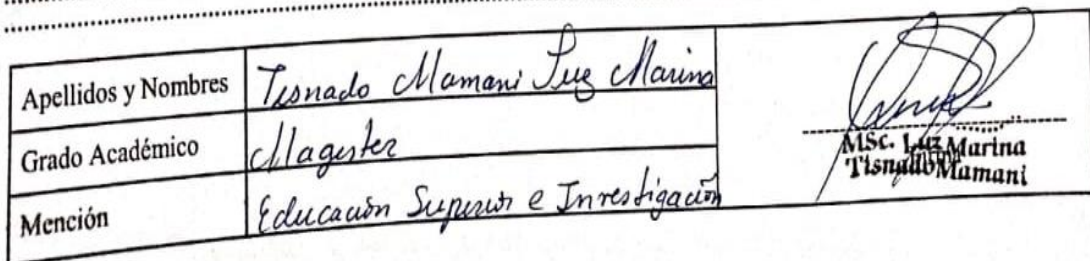 Apellidos y Nombres Tisnado Mamani Luz Marina
Grado Académico Magister
Mención Educación Superior e Investigación
MSc. Luz Marina
Tisnado Mamani